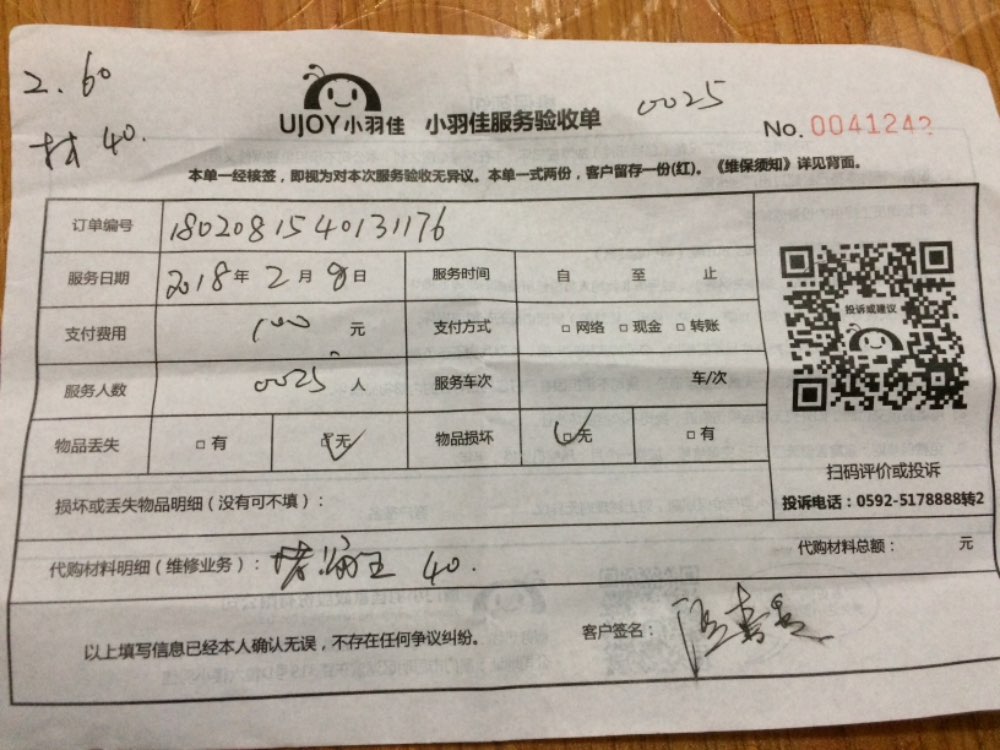 2.60
0025
UJOY小羽佳 小羽佳服务验收单
No. 0041243
材 40.
本单一经核签，即视为对本次服务验收无异议。本单一式两份，客户留存一份(红)。《维保须知》详见背面。
订单编号 1802081540131176
服务日期 2018年 2月 8日 服务时间 自 至 止
支付费用 100 元 支付方式 □网络 □现金 □转账
投诉或建议
服务人数 0025 人 服务车次 车/次
物品丢失 □有 □无 物品损坏 □无 □有
扫码评价或投诉
损坏或丢失物品明细（没有可不填）：
投诉电话：0592-5178888转2
代购材料明细（维修业务）： 堵漏王 40.
代购材料总额： 元
以上填写信息已经本人确认无误，不存在任何争议纠纷。
客户签名：